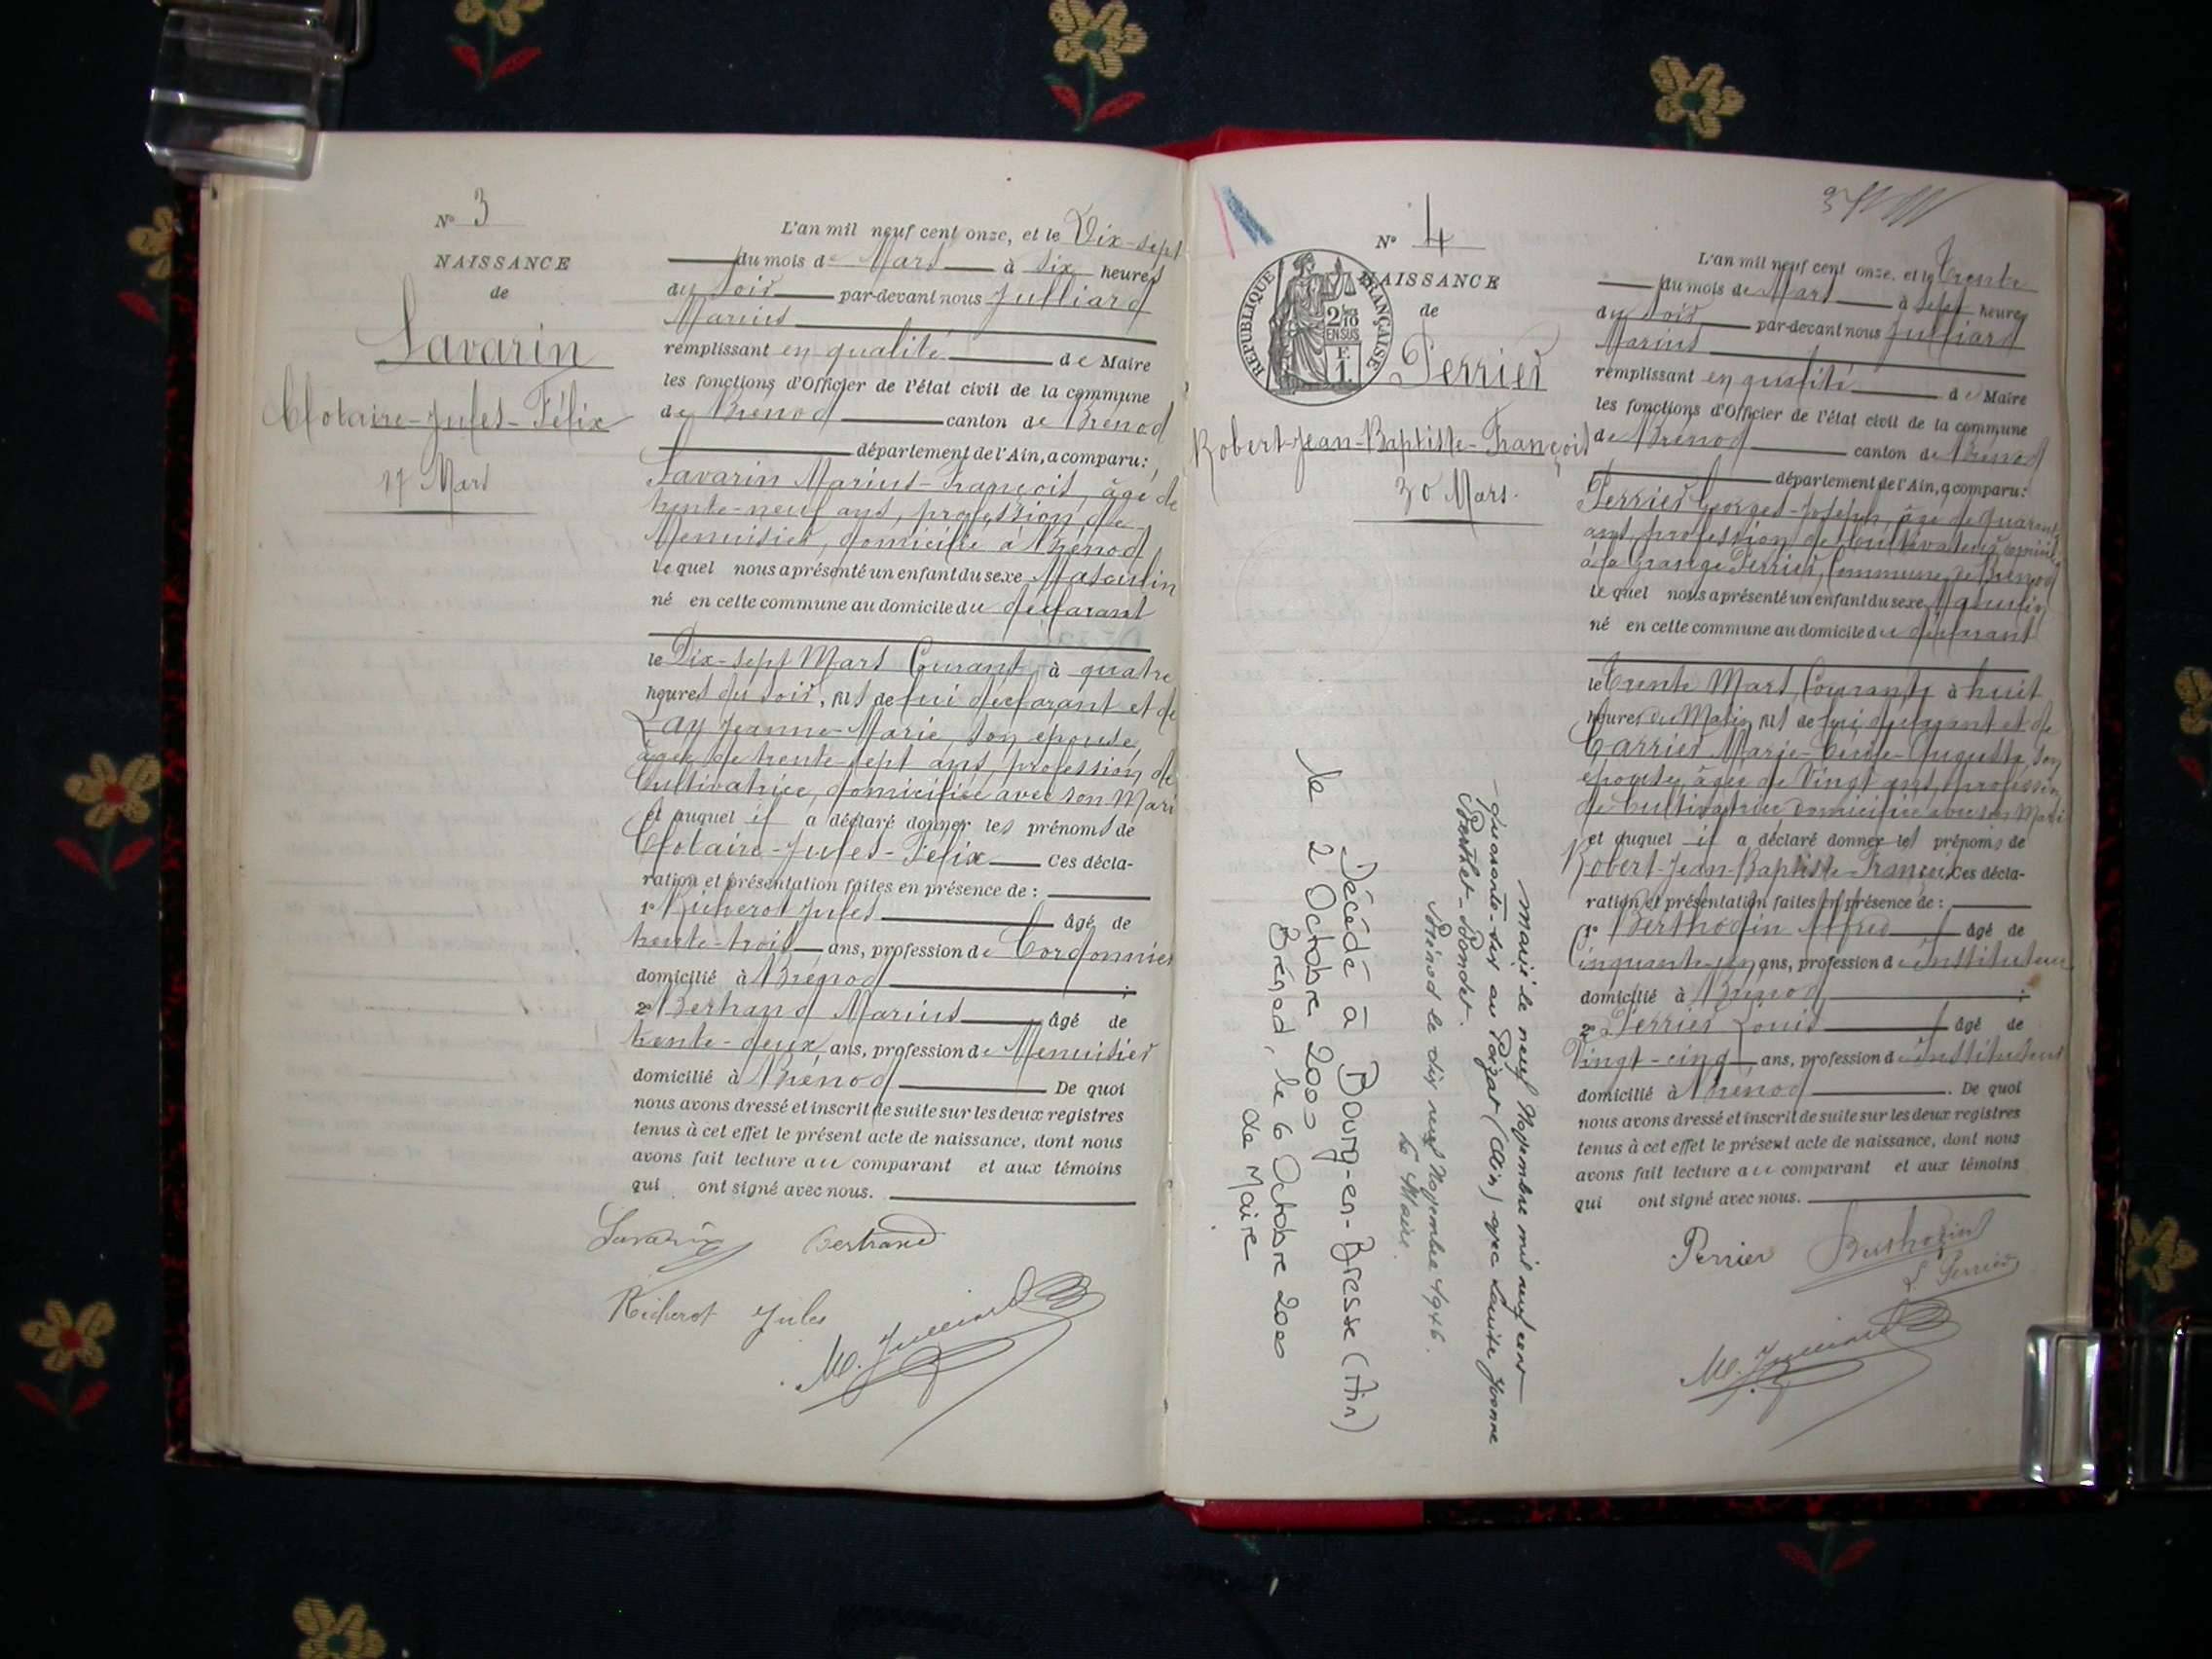 N° 3
NAISSANCE
de
Savarin
Clotaire-Jules-Félix
17 Mars
L'an mil neuf cent onze, et le Dix-sept
du mois de Mars à six heures
du soir par-devant nous Julliard
Marius
remplissant en qualité de Maire
les fonctions d'Officier de l'état civil de la commune
de Brénod canton de Brénod
département de l'Ain, a comparu:
Savarin Marius-François, âgé de
trente-neuf ans, profession de
Menuisier, domicilié à Brénod
lequel nous a présenté un enfant du sexe Masculin
né en cette commune au domicile du déclarant
le Dix-sept Mars Courant à quatre
heures du soir, fils de lui déclarant et de
Lay Jeanne-Marie son épouse,
âgée de trente-sept ans, profession de
Cultivatrice, domiciliée avec son Mari
et auquel il a déclaré donner les prénoms de
Clotaire-Jules-Félix Ces décla-
ration et présentation faites en présence de :
1° Jules âgé de
trente-trois ans, profession de Cordonnier
domicilié à Brénod ;
2° Bertrand Marius âgé de
trente-deux ans, profession de Menuisier
domicilié à Brénod De quoi
nous avons dressé et inscrit de suite sur les deux registres
tenus à cet effet le présent acte de naissance, dont nous
avons fait lecture au comparant et aux témoins
qui ont signé avec nous.
Savarin Bertrand
Jules
M. Julliard
N° 4
NAISSANCE
de
RÉPUBLIQUE FRANÇAISE
2/10
EN SUS
F.
1.
Perrier
Robert-Jean-Baptiste-François
30 Mars.
Marié le neuf Novembre mil neuf cent
quarante-six au Poizat (Ain) avec Louise Yvonne
Berthet-Bondet.
Brénod le dix neuf Novembre 1946.
Le Maire.
Décédé à Bourg-en-Bresse (Ain)
le 2 Octobre 2000
Brénod, le 6 Octobre 2000
de Maire
L'an mil neuf cent onze, et le Trente
du mois de Mars à sept heures
du soir par-devant nous Julliard
Marius
remplissant en qualité de Maire
les fonctions d'Officier de l'état civil de la commune
de Brénod canton de Brénod
département de l'Ain, a comparu:
Perrier Georges-Joseph, âgé de quarante
ans, profession de Cultivateur domicilié
à la Grange Perrier, Commune de Brénod
lequel nous a présenté un enfant du sexe Masculin
né en cette commune au domicile du déclarant
le Trente Mars Courant à huit
heures du Matin fils de lui déclarant et de
Carrier Marie- -Augusta, son
épouse, âgée de Vingt ans, profession
de Cultivatrice domiciliée avec son Mari
et auquel il a déclaré donner les prénoms de
Robert-Jean-Baptiste-François Ces décla-
ration et présentation faites en présence de :
1° Berthodin Alfred âgé de
Cinquante-un ans, profession d'instituteur
domicilié à Brénod ;
2° Perrier Louis âgé de
Vingt-cinq ans, profession d'instituteur
domicilié à Brénod. De quoi
nous avons dressé et inscrit de suite sur les deux registres
tenus à cet effet le présent acte de naissance, dont nous
avons fait lecture au comparant et aux témoins
qui ont signé avec nous.
Perrier Berthodin
L. Perrier
M. Julliard